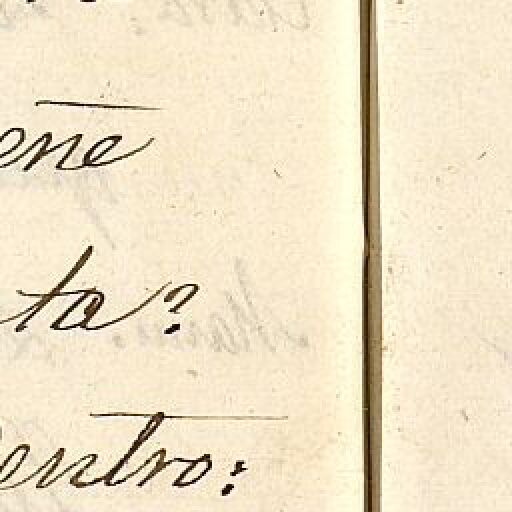 ene
ta?
entro: